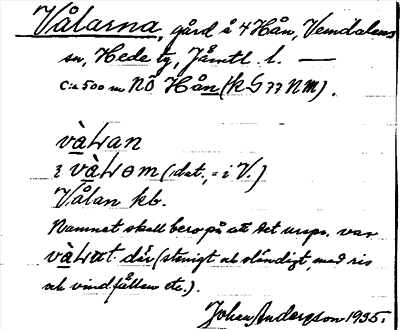 Vålarna, gård å 4 Hån, Vemdalens
sn, Hede tg, Jämtl. l. —
c:a 500 m NÖ Hån (k G 77 NM).
Vålan kb.
Namnet skall bero på att det urspr. var
där (stenigt och eländigt, med ris
och vindfällen etc.).
Johan Andersson 1935.